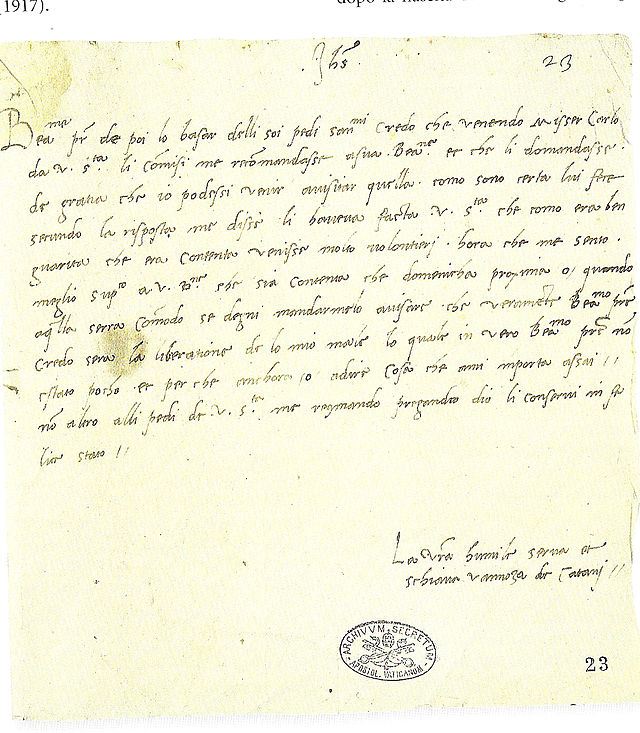 (1917).
dopo la nascita
Jhs 23
Bea.me pr̃ de poi lo basar delli soi pedi san.mi Credo che venendo Misser Carlo
da v. s.ta li Cõmisi me recõmandasse a sua Bea.ne et che li domandasse
de gratia che io podessi venir avisitar quella. como sono certa lui fece
secundo la risposta me disse li haveva facta v. s.ta che como era ben
guarita che era Contenta venisse molto volontieri. hora che me sento
meglio sup.co a v. B.ne che sia Contenta che domenicha proxima o quando
aq̃lla serra Cõmodo se degni mandarmelo avisare che veramẽte Bea.mo pr̃e
Credo sera la liberatione de lo mio male lo quale in vero Bea.mo pr̃e nõ
estato pocho et per che anchora io adire Cosa che ami importa assai //
nõ altro alli pedi de v. s.ta me raymando pregando dio li conservi in fe
lice stato //
La Vr̃a humile serva et
schiava vannoza de Catanj //
ARCHIVVM SECRETVM
APOSTOL. VATICANVM
23